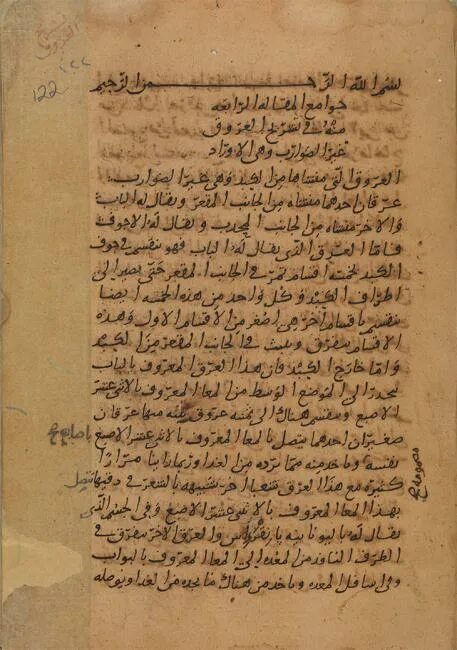 تشريح
العروق
122
١٢٢
بسم الله الرحمن الرحيم
جوامع المقاله الرابعه
منه في تشريح العروق
غير الضوارب وهي الاوراد
العروق التي منشاها من الكبد وهي غير الضوارب
عرقان احدهما منشاه من الجانب المقعر ويقال له الباب
والاخر منشاه من الجانب المحدب ويقال له الاجوف
فاما العرق الذي يقال له الباب فهو ينقسم في جوف
الكبد بخمسة اقسام تمر في الجانب المقعر حتى يصير الى
اطراف الكبد وكل واحد من هذه الخمسة ايضا
ينقسم باقسام اخر هي اصغر من الاقسام الاول وهذه
الاقسام تتفرق وتنبث في الجانب المقعر من الكبد
واما خارج الكبد فان هذا العرق المعروف بالباب
ينحدر الى الموضع الوسط من المعا المعروف بالاثني عشر
الاصبع وينقسم هناك الى ثمنية عروق ثمنية منها عرقان
صغيران احدهما يتصل بالمعا المعروف بالاثني عشر الاصبع
نفسه وياخذ منه مما يرده من الغذا وربما رايتا مرارا
كثيرة مع هذا العرق شعبا اخر شبيهه بالشعر في دقتها تتصل
بهذا المعا المعروف بالاثني عشر الاصبع وفي الجسم الذي
يقال له باليونانيه بانقراس والعرق الاخر يتفرق في
الطرف النافذ من المعده الى المعا المعروف بالبواب
وفي اسافل المعده وياخذ من هناك ما يجده من الغذا ويوصله